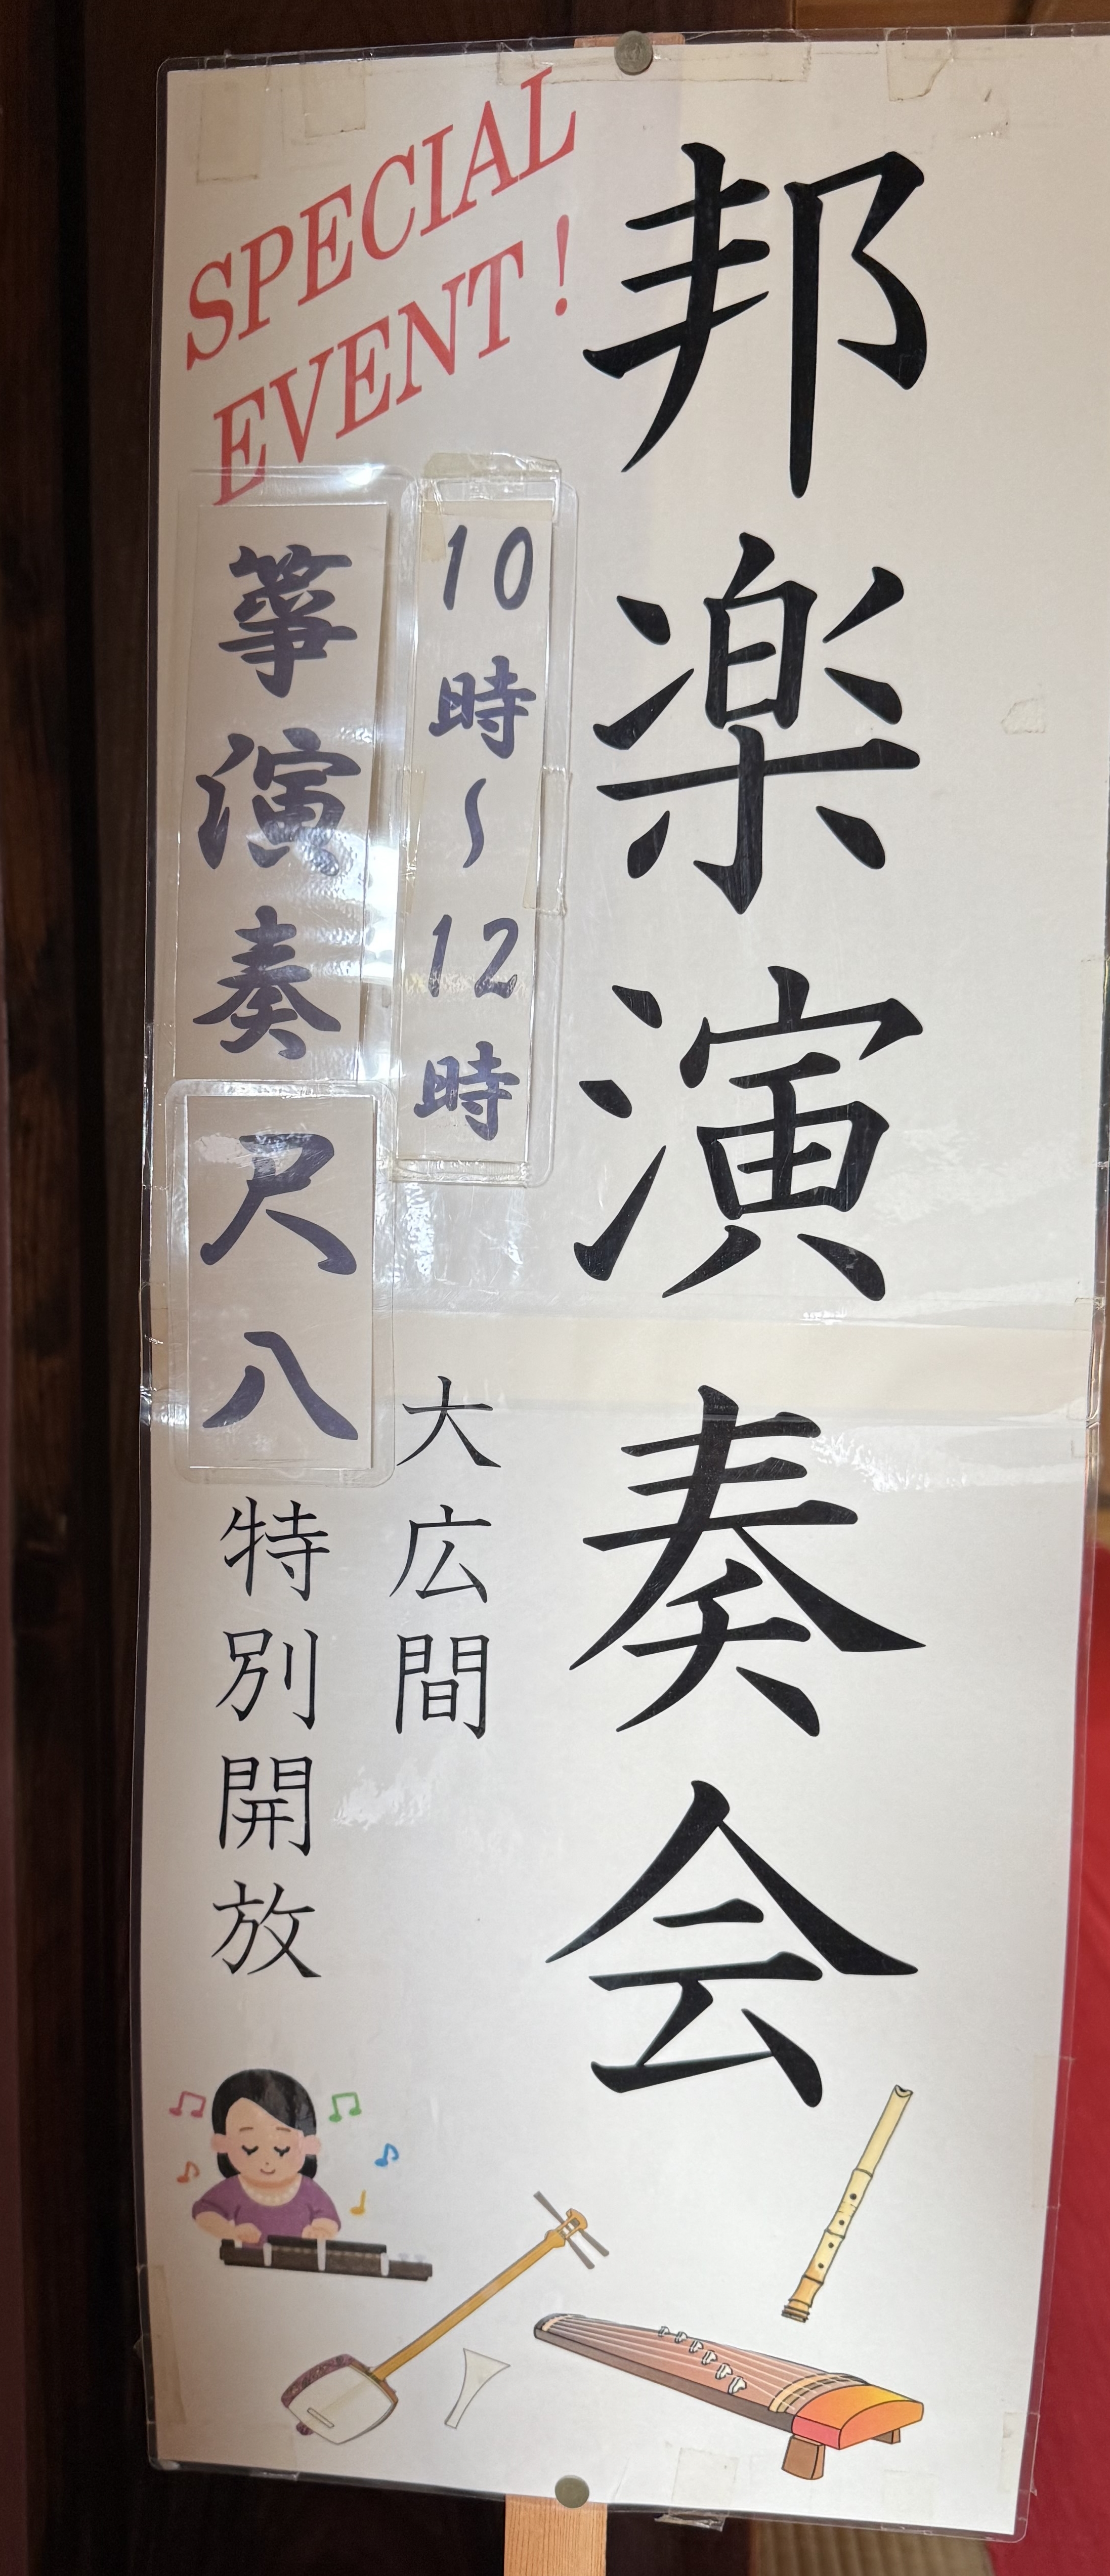 邦楽演奏会
SPECIAL
EVENT!
10時～12時
箏演奏
尺八
大広間
特別開放